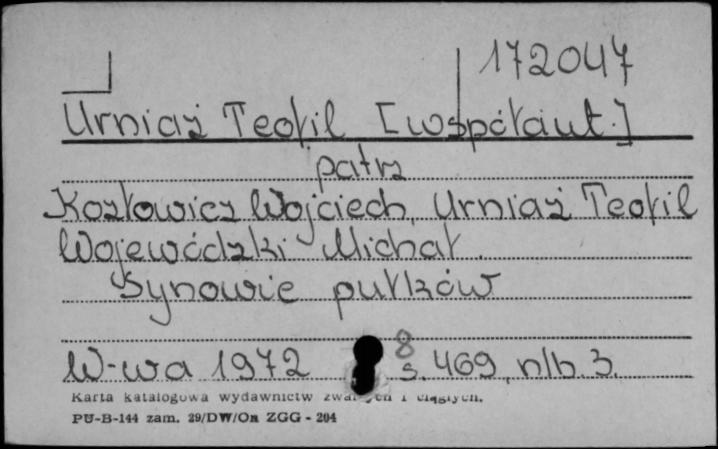 172047
Urniaż Teofil [współaut.]
patrz
Kozłowicz Wojciech, Urniaż Teofil
Wojewódzki Michał.
Synowie pułków
W-wa 1972 8 s. 469, nlb. 3.
Karta katalogowa wydawnictw zwartych i ciągłych.
PU-B-144 zam. 29/DW/On ZGG - 204